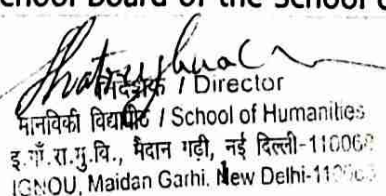 chool Board of the School
निदेशक / Director
मानविकी विद्यापीठ / School of Humanities
इ.गाँ.रा.मु.वि., मैदान गढ़ी, नई दिल्ली-110068
IGNOU, Maidan Garhi, New Delhi-110068